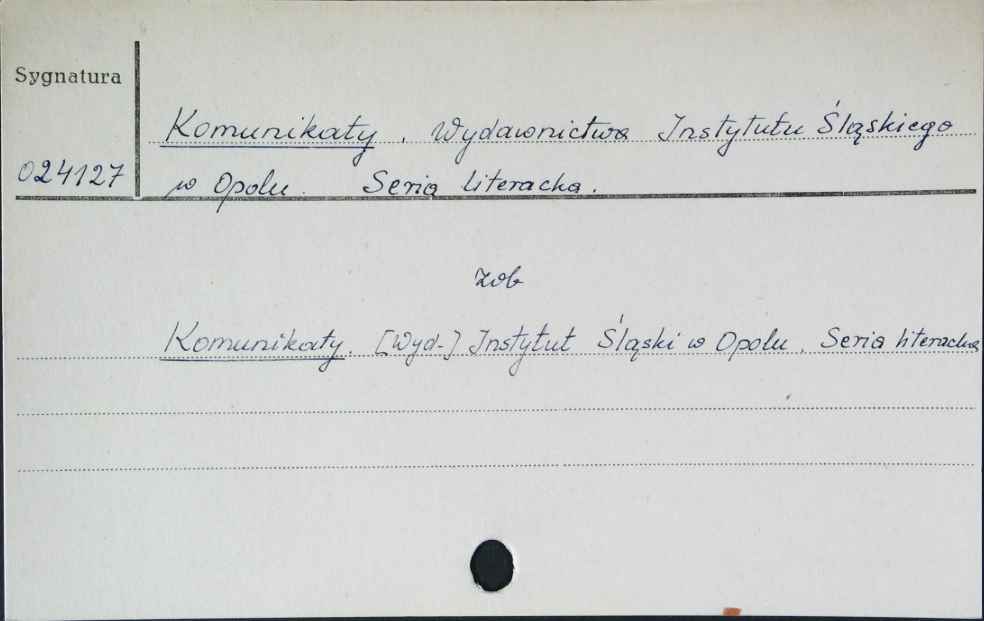 Sygnatura
Komunikaty. Wydawnictwa Instytutu Śląskiego
024127 w Opolu. Seria literacka.
zob
Komunikaty. [Wyd-] Instytut Śląski w Opolu. Seria literacka